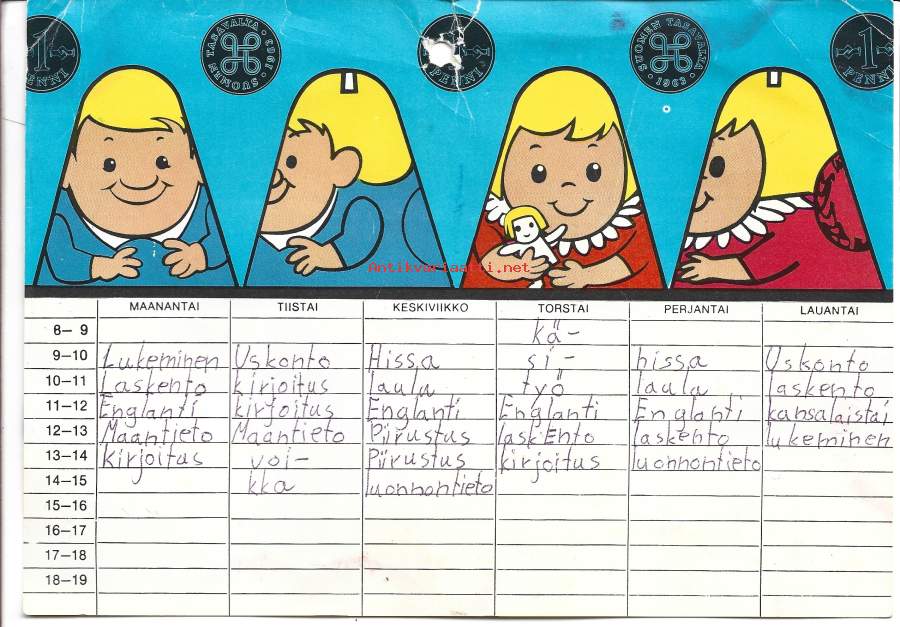 1 PENNI
SUOMEN TASAVALTA · 1963 ·
PENNI
SUOMEN TASAVALTA · 1963 ·
1 PENNI
Antikvariaatti.net
MAANANTAI TIISTAI KESKIVIIKKO TORSTAI PERJANTAI LAUANTAI
8–9 kä-
9–10 Lukeminen Uskonto Hissa si- hissa Uskonto
10–11 Laskento kirjoitus laulu työ laulu laskento
11–12 Englanti kirjoitus Englanti Englanti Englanti kansalaistai
12–13 Maantieto Maantieto Piirustus laskEnto laskento lukeminen
13–14 kirjoitus voi- Piirustus kirjoitus luonnontieto
14–15 kka luonnontieto
15–16
16–17
17–18
18–19